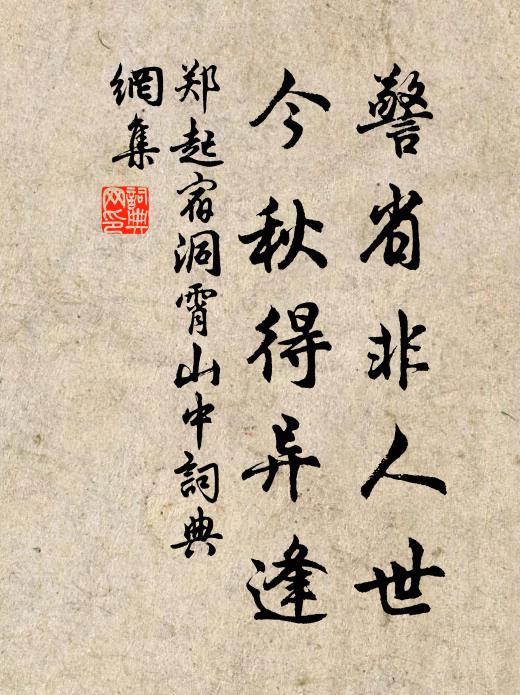 警省非人世
今秋得异逢
郑起宿洞霄山中詞典
網集
詞典
网印